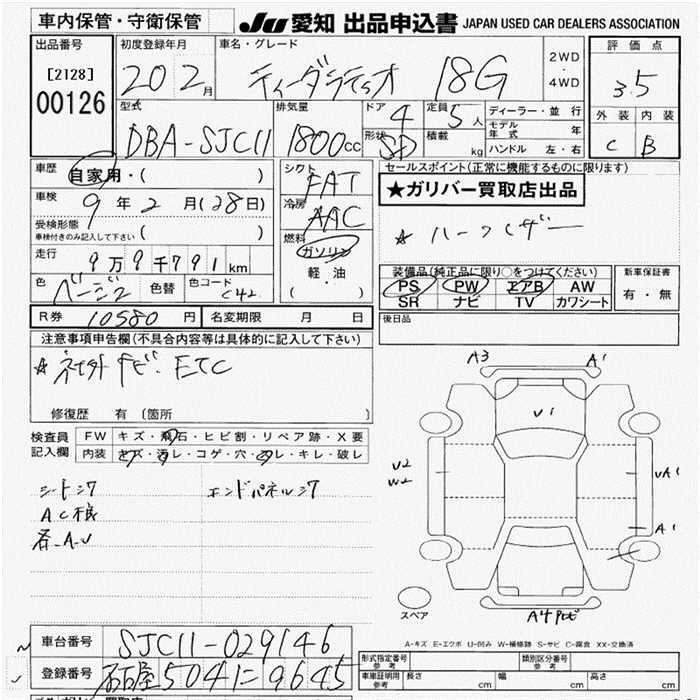 車内保管・守衛保管
JU 愛知 出品申込書 JAPAN USED CAR DEALERS ASSOCIATION
出品番号
[2128]
00126
初度登録年月
20 2月
車名・グレード
ティーダラティオ 18G
2WD
・
4WD
評価点
3.5
外装 内装
C B
型式
DBA-SJC11
排気量
1800cc
ドア
4
形状
SD
定員
5人
積載
kg
ディーラー・並行
モデル年式 年
ハンドル 左・右
車歴
自家用・( )
車検
9年2月(28日)
受検形態
車検付きのみ記入して下さい
( )
走行
9万9千791km
色
ベージュ
色替
色コード
C42
シフト
FAT
冷房
AAC
燃料
ガソリン
軽・油
( )
セールスポイント(正常に機能するものに限ります)
★ガリバー買取店出品
☆ ハーフレザー
装備品(純正品に限り○をつけてください)
PS PW エアB AW
SR ナビ TV カワシート
新車保証書
有・無
R券 10580円
名変期限 月 日
後日品
注意事項申告欄(不具合内容等は具体的に記入して下さい)
☆ 社外ナビ・ETC
修復歴 有 〔箇所 〕
検査員
記入欄
FW キズ・飛石・ヒビ割・リペア跡・X要
内装 キズ・汚レ・コゲ・穴・スレ・キレ・破レ
シートシワ
エンドパネルシワ
AC様
各-A・U
A3
A1
U1
U2
W2
UA1
A1
A4
スペア
A-キズ E-エクボ U-凹み W-補修跡 S-サビ C-腐食 XX-交換済
車台番号
SJC11-029146
登録番号
名古屋504に9645
型式指定番号
参考
類別区分番号
参考
車庫証明用
参考
長さ cm
幅 cm
高さ cm